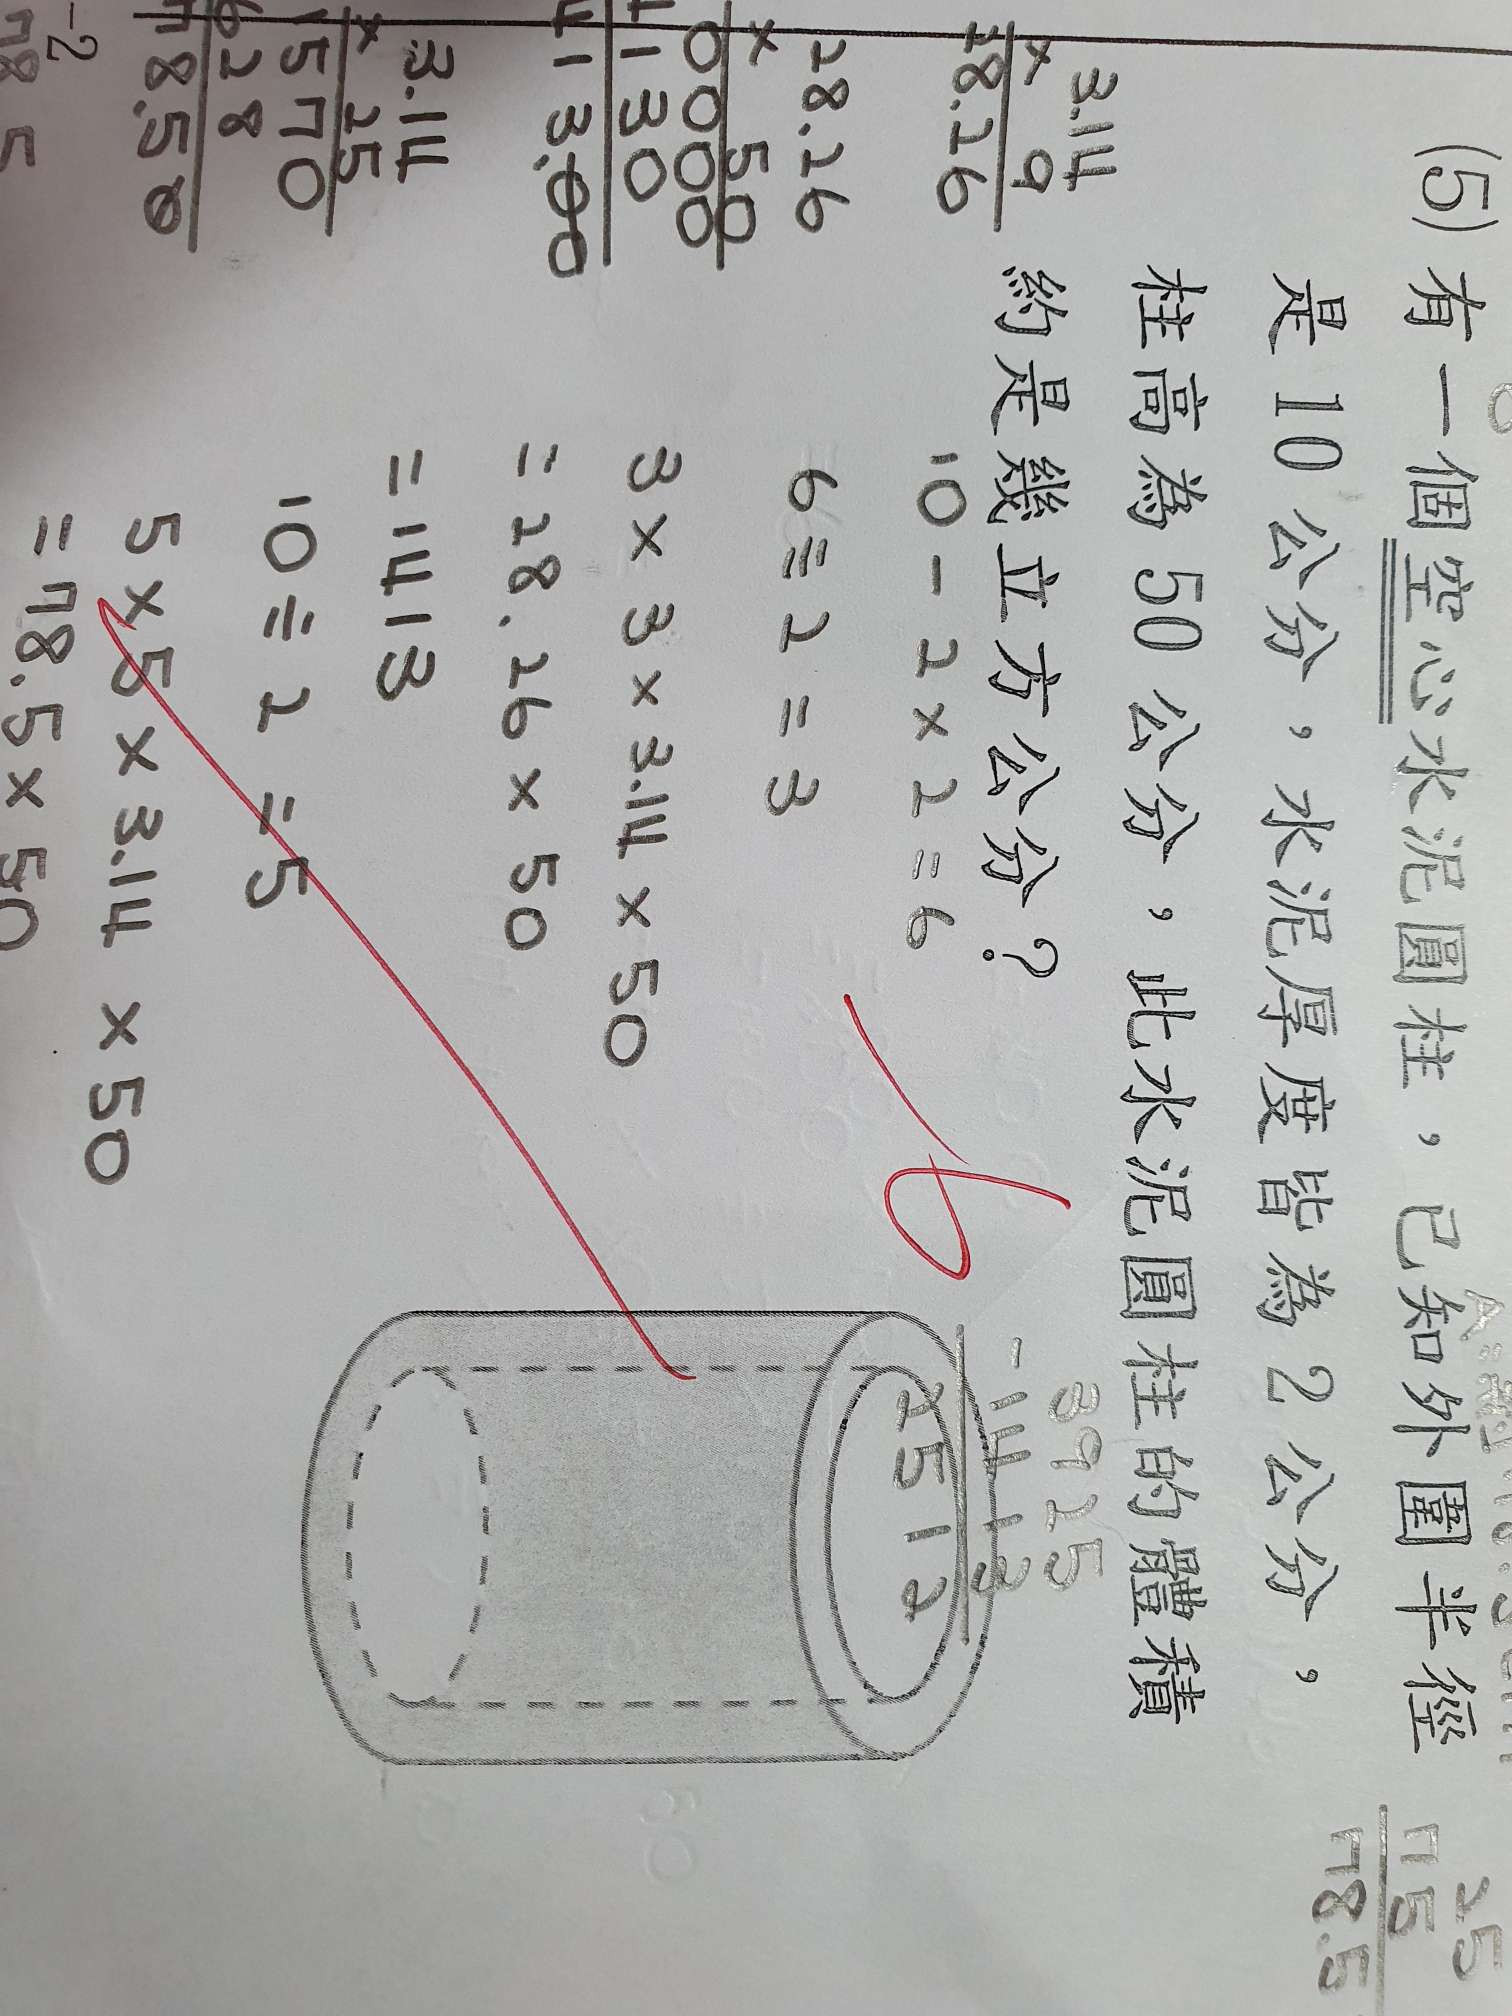 (5) 有一個空心水泥圓柱，已知外圍半徑
是 10 公分，水泥厚度皆為 2 公分，
柱高為 50 公分，此水泥圓柱的體積
約是幾立方公分？
10-2×2=6
6÷2=3
3×3×3.14×50
=28.26×50
=1413
10÷2=5
5×5×3.14×50
=78.5×50
3.14
× 9
28.26
28.26
× 50
0000
3.14
× 25
1570
628
78.50
3925
-1413
2512
25
75
78.5
-2